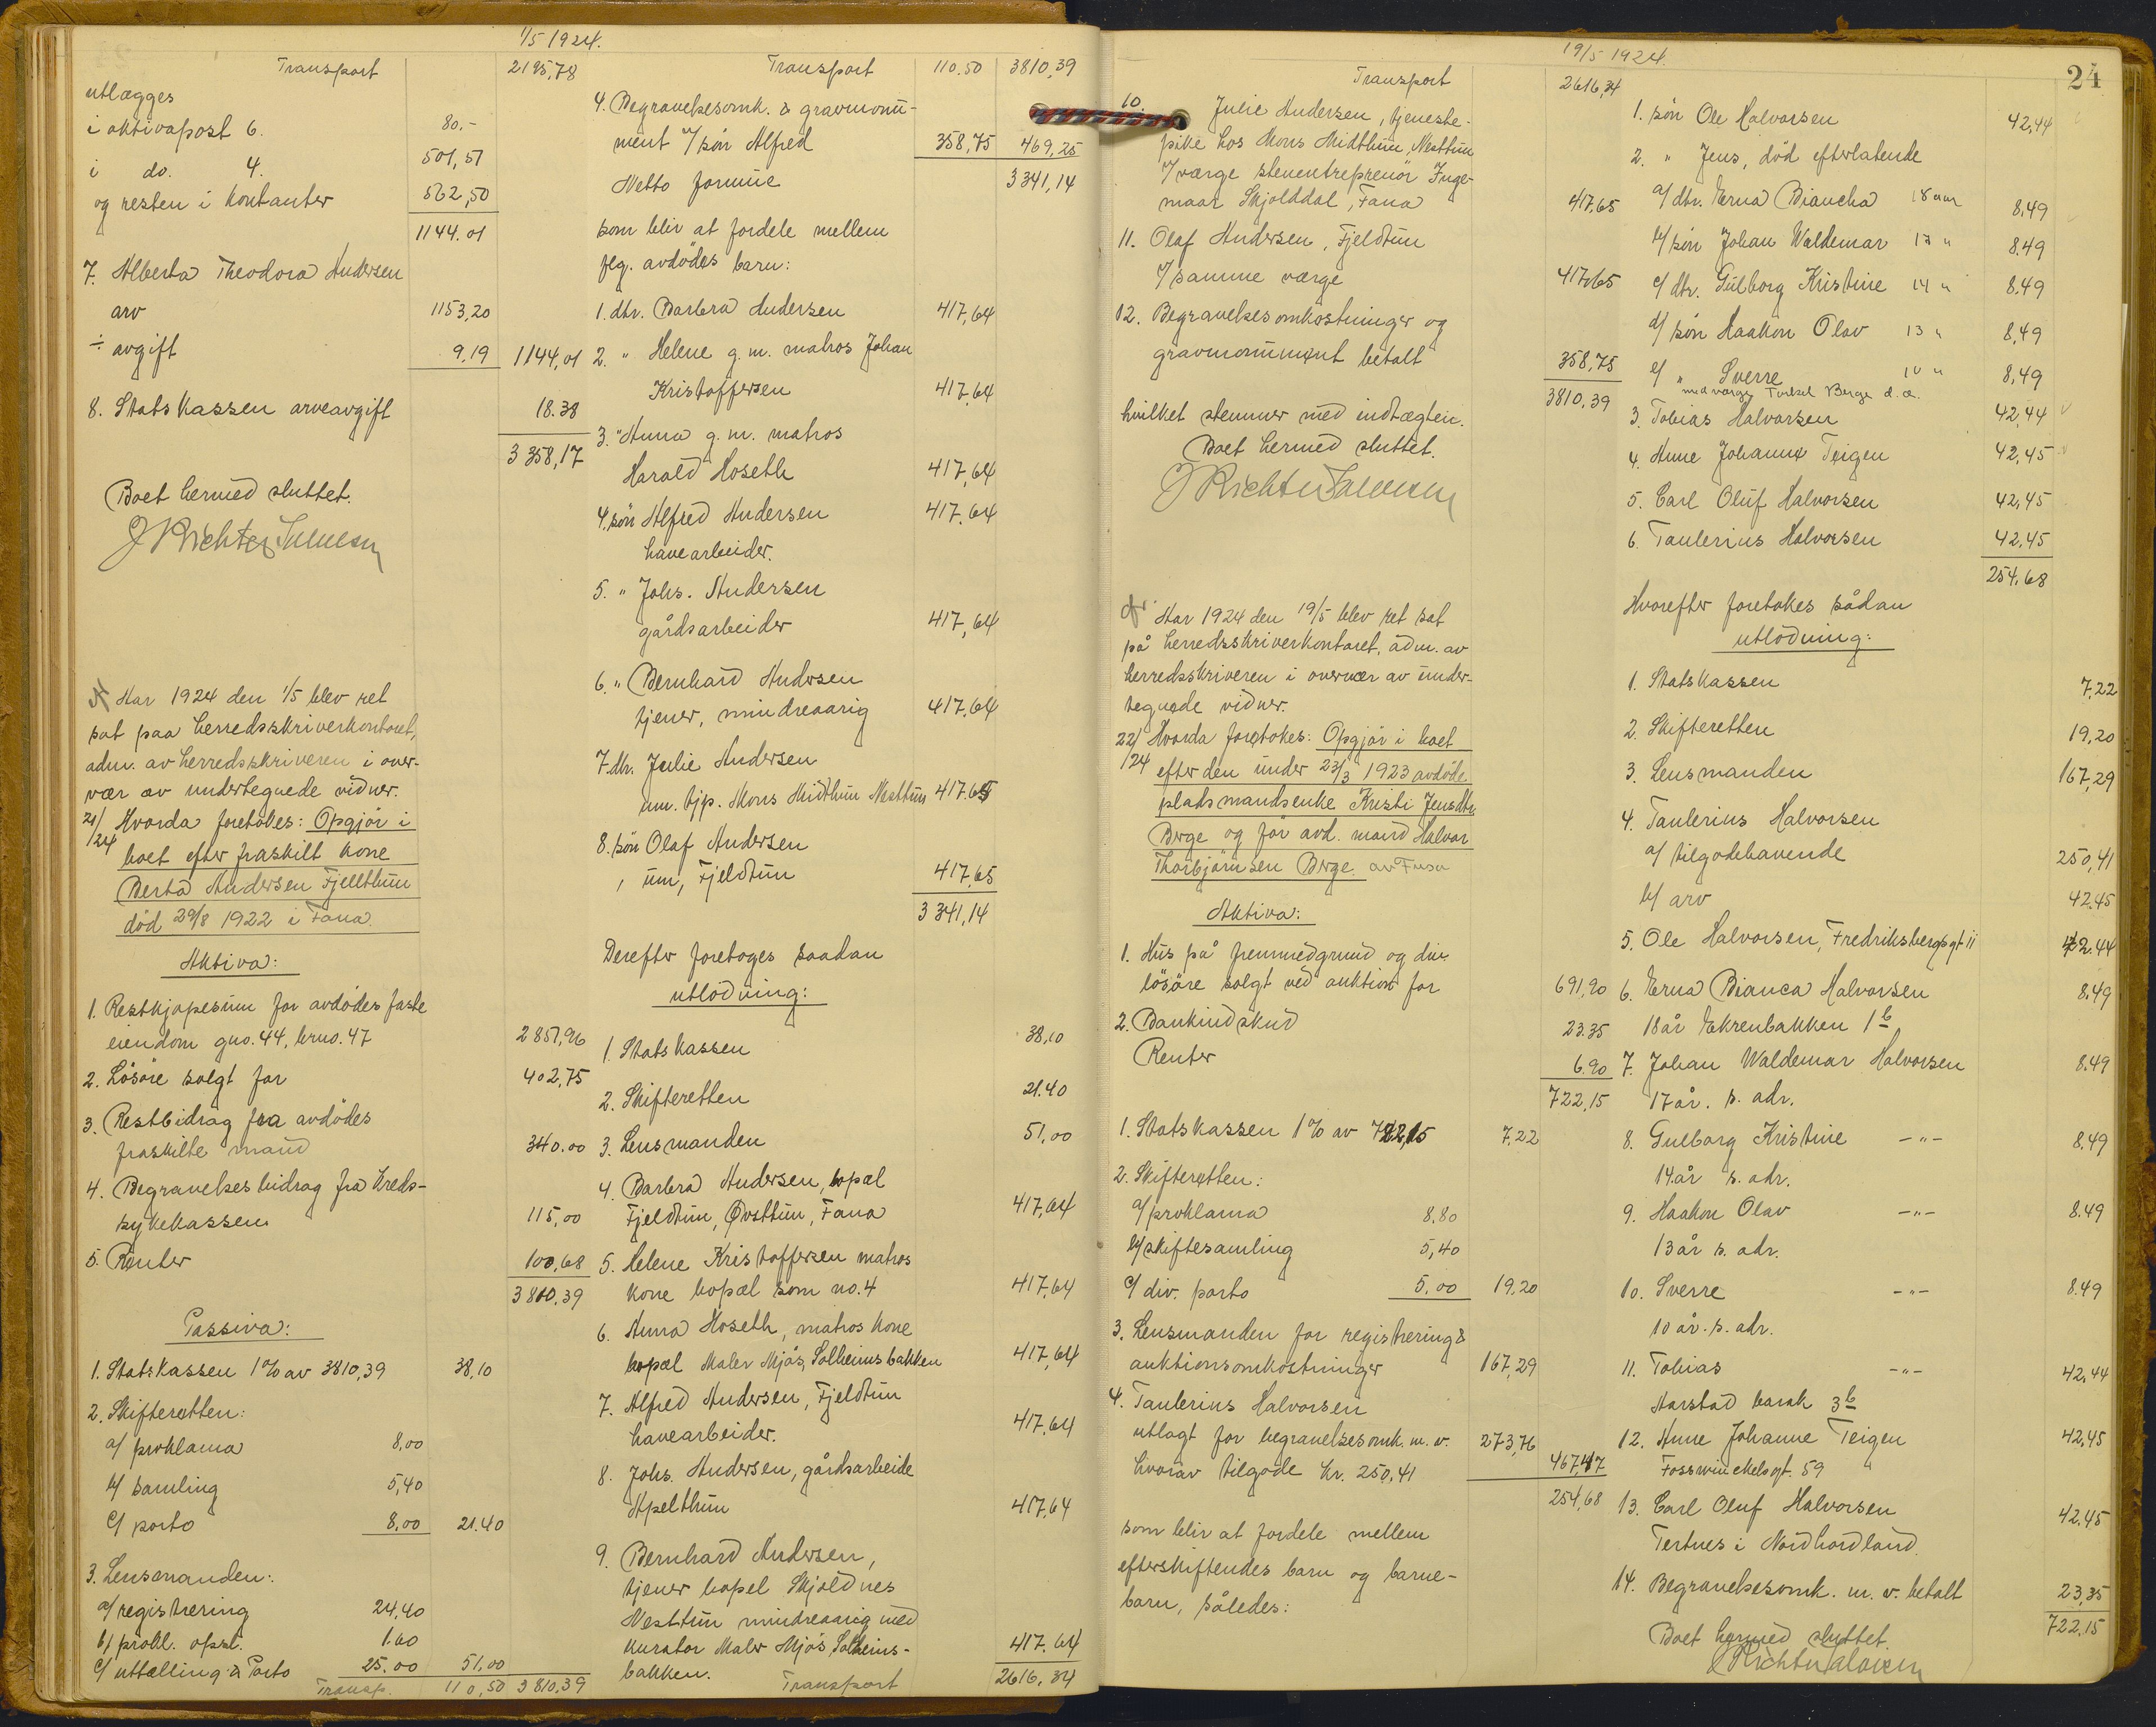 1/5 1924.
Transport 2195,78
utlægges
i aktivapost 6. 80.-
i do. 4. 501,51
og resten i kontanter 562,50
1144.01
7. Alberta Theodora Andersen
arv 1153,20
÷ avgift 9,19 1144,01
8. Statskassen arveavgift 18.38
3358,17
Boet hermed sluttet.
J Richter
Aar 1924 den 1/5 blev ret
sat paa herredsskriverkontoret,
adm. av herredsskriveren i over-
vær av undertegnede vidner.
21/24 Hvorda foretokes: Opgjør i
boet efter fraskilt kone
Berta Andersen Fjeldthun
død 29/8 1922 i Fana.
Aktiva:
1. Restkjøpesum for avdødes faste
eiendom gno. 44, brno. 47 2851,96
2. Løsøre solgt for 402,75
3. Restbidrag fra avdødes
fraskilte mand 340.00
4. Begravelsesbidrag fra kreds-
sykekassen 115,00
5. Renter 100,68
3810,39
Passiva:
1. Statskassen 1% av 3810,39 38,10
2. Skifteretten:
a/ proklama 8,00
b/ samling 5,40
c/ porto 8,00 21.40
3. Lensmanden:
a/ registrering 24,40
b/ prokl. opsl. 1.60
c/ uttælling & Porto 25.00 51,00
Transp. 110,50 3810,39
Transport 110.50 3810,39
4. Begravelsesomk. & gravmonu-
ment v/ søn Alfred 358,75 469,25
Netto formue 3341,14
som blir at fordele mellem
flg. avdødes barn:
1. dtr. Barbra Andersen 417,64
2. " Helene g.m. matros Johan
Kristoffersen 417,64
3. " Anna g.m. matros
Harald Hoseth 417,64
4. søn Alfred Andersen 417,64
havearbeider.
5. " Johs. Andersen
gårdsarbeider 417,64
6. " Bernhard Andersen
tjener, mindreaarig 417,64
7. dtr. Julie Andersen
um. tjp. Mons Midthun Nesttun 417.65
8. søn Olaf Andersen
, um, Fjeldtun 417,65
3341,14
Derefter foretoges saadan
utlodning:
1. Statskassen 38,10
2. Skifteretten 21.40
3. Lensmanden 51,00
4. Barbra Andersen, bopæl
Fjeldtun, Øvsttun, Fana 417,64
5. Helene Kristoffersen matros
kone bopæl som no. 4 417,64
6. Anna Hoseth, matros kone
bopæl Maler Mjøs, Solheimsbakken 417,64
7. Alfred Andersen, Fjeldtun
havearbeider. 417,64
8. Johs. Andersen, gårdsarbeide
Apelthun 417,64
9. Bernhard Andersen,
tjener bopel Skjoldnes
Nesttun mindreaarig med
kurator Maler Mjøs Solheims-
bakken. 417.64
Transport 2616,34
19/5 1924.
24
Transport 2616,34
10. Julie Andersen, tjeneste-
pike hos Mons Midthun, Nesttun
v/ værge stenentreprenør Inge-
maar Skjolddal, Fana 417,65
11. Olaf Andersen, Fjeldtun
v/ samme værge 417,65
12. Begravelsesomkostninger og
gravmonument betalt 358,75
3810,39
hvilket stemmer med indtægten.
Boet hermed sluttet.
J Richter
Aar 1924 den 19/5 blev ret sat
på herredsskriverkontoret, adm. av
herredsskriveren i overvær av under-
tegnede vidner.
22/24 Hvorda foretokes: Opgjør i boet
efter den under 23/3 1923 avdøde
pladsmandsenke Kristi Jensdtr.
Berge og før avd. mand Halvor
Thorbjørnsen Berge. av Fusa
Aktiva:
1. Hus på fremmedgrund og div.
løsøre solgt ved auktion for 691,90
2. Bankindskud 23.35
Renter 6.90
722,15
1. Statskassen 1% av 722,15 7,22
2. Skifteretten:
a/ proklama 8,80
b/ skiftesamling 5,40
c/ div. porto 5,00 19,20
3. Lensmanden for registrering &
auktionsomkostninger 167,29
4. Taulerius Halvorsen
utlagt for begravelsesomk. m.v. 273,76
hvorav tilgode kr. 250.41 467,47
254,68
som blir at fordele mellem
efterskiftendes barn og barne-
barn, således:
1. søn Ole Halvorsen 42,44
2. " Jens, død efterlatende
a/ dtr. Erna Biancha 18 aar 8,49
b/ søn Johan Waldemar 17 " 8.49
c/ dtr. Gulborg Kristine 14 " 8.49
d/ søn Haakon Olav 13 " 8,49
e/ " Sverre 10 " 8,49
med værge Torkel Berge d.æ.
3. Tobias Halvorsen 42,44
4. Anne Johanne Teigen 42,45
5. Carl Oluf Halvorsen 42,45
6. Taulerius Halvorsen 42,45
254,68
Hvorefter foretokes sådan
utlodning:
1. Statskassen 7,22
2. Skifteretten 19,20
3. Lensmanden 167,29
4. Taulerius Halvorsen
a/ tilgodehavende 250,41
b/ arv 42.45
5. Ole Halvorsen, Fredriksbergsgt 11 42.44
6. Erna Bianca Halvorsen 8,49
18 år Ekrenbakken 1 b
7. Johan Waldemar Halvorsen 8.49
17 år. s. adr.
8. Gulborg Kristine -"- 8.49
14 år s. adr.
9. Haakon Olav -"- 8.49
13 år s. adr.
10. Sverre -"- 8.49
10 år. s. adr.
11. Tobias -"- 42,44
Harstad barak 3 b
12. Anne Johanne Teigen 42,45
Fosswinckelsgt. 59
13. Carl Oluf Halvorsen 42.45
Tertnes i Nordhordland.
14. Begravelsesomk. m.v. betalt 23,35
722,15
Boet hermed sluttet.
J Richter